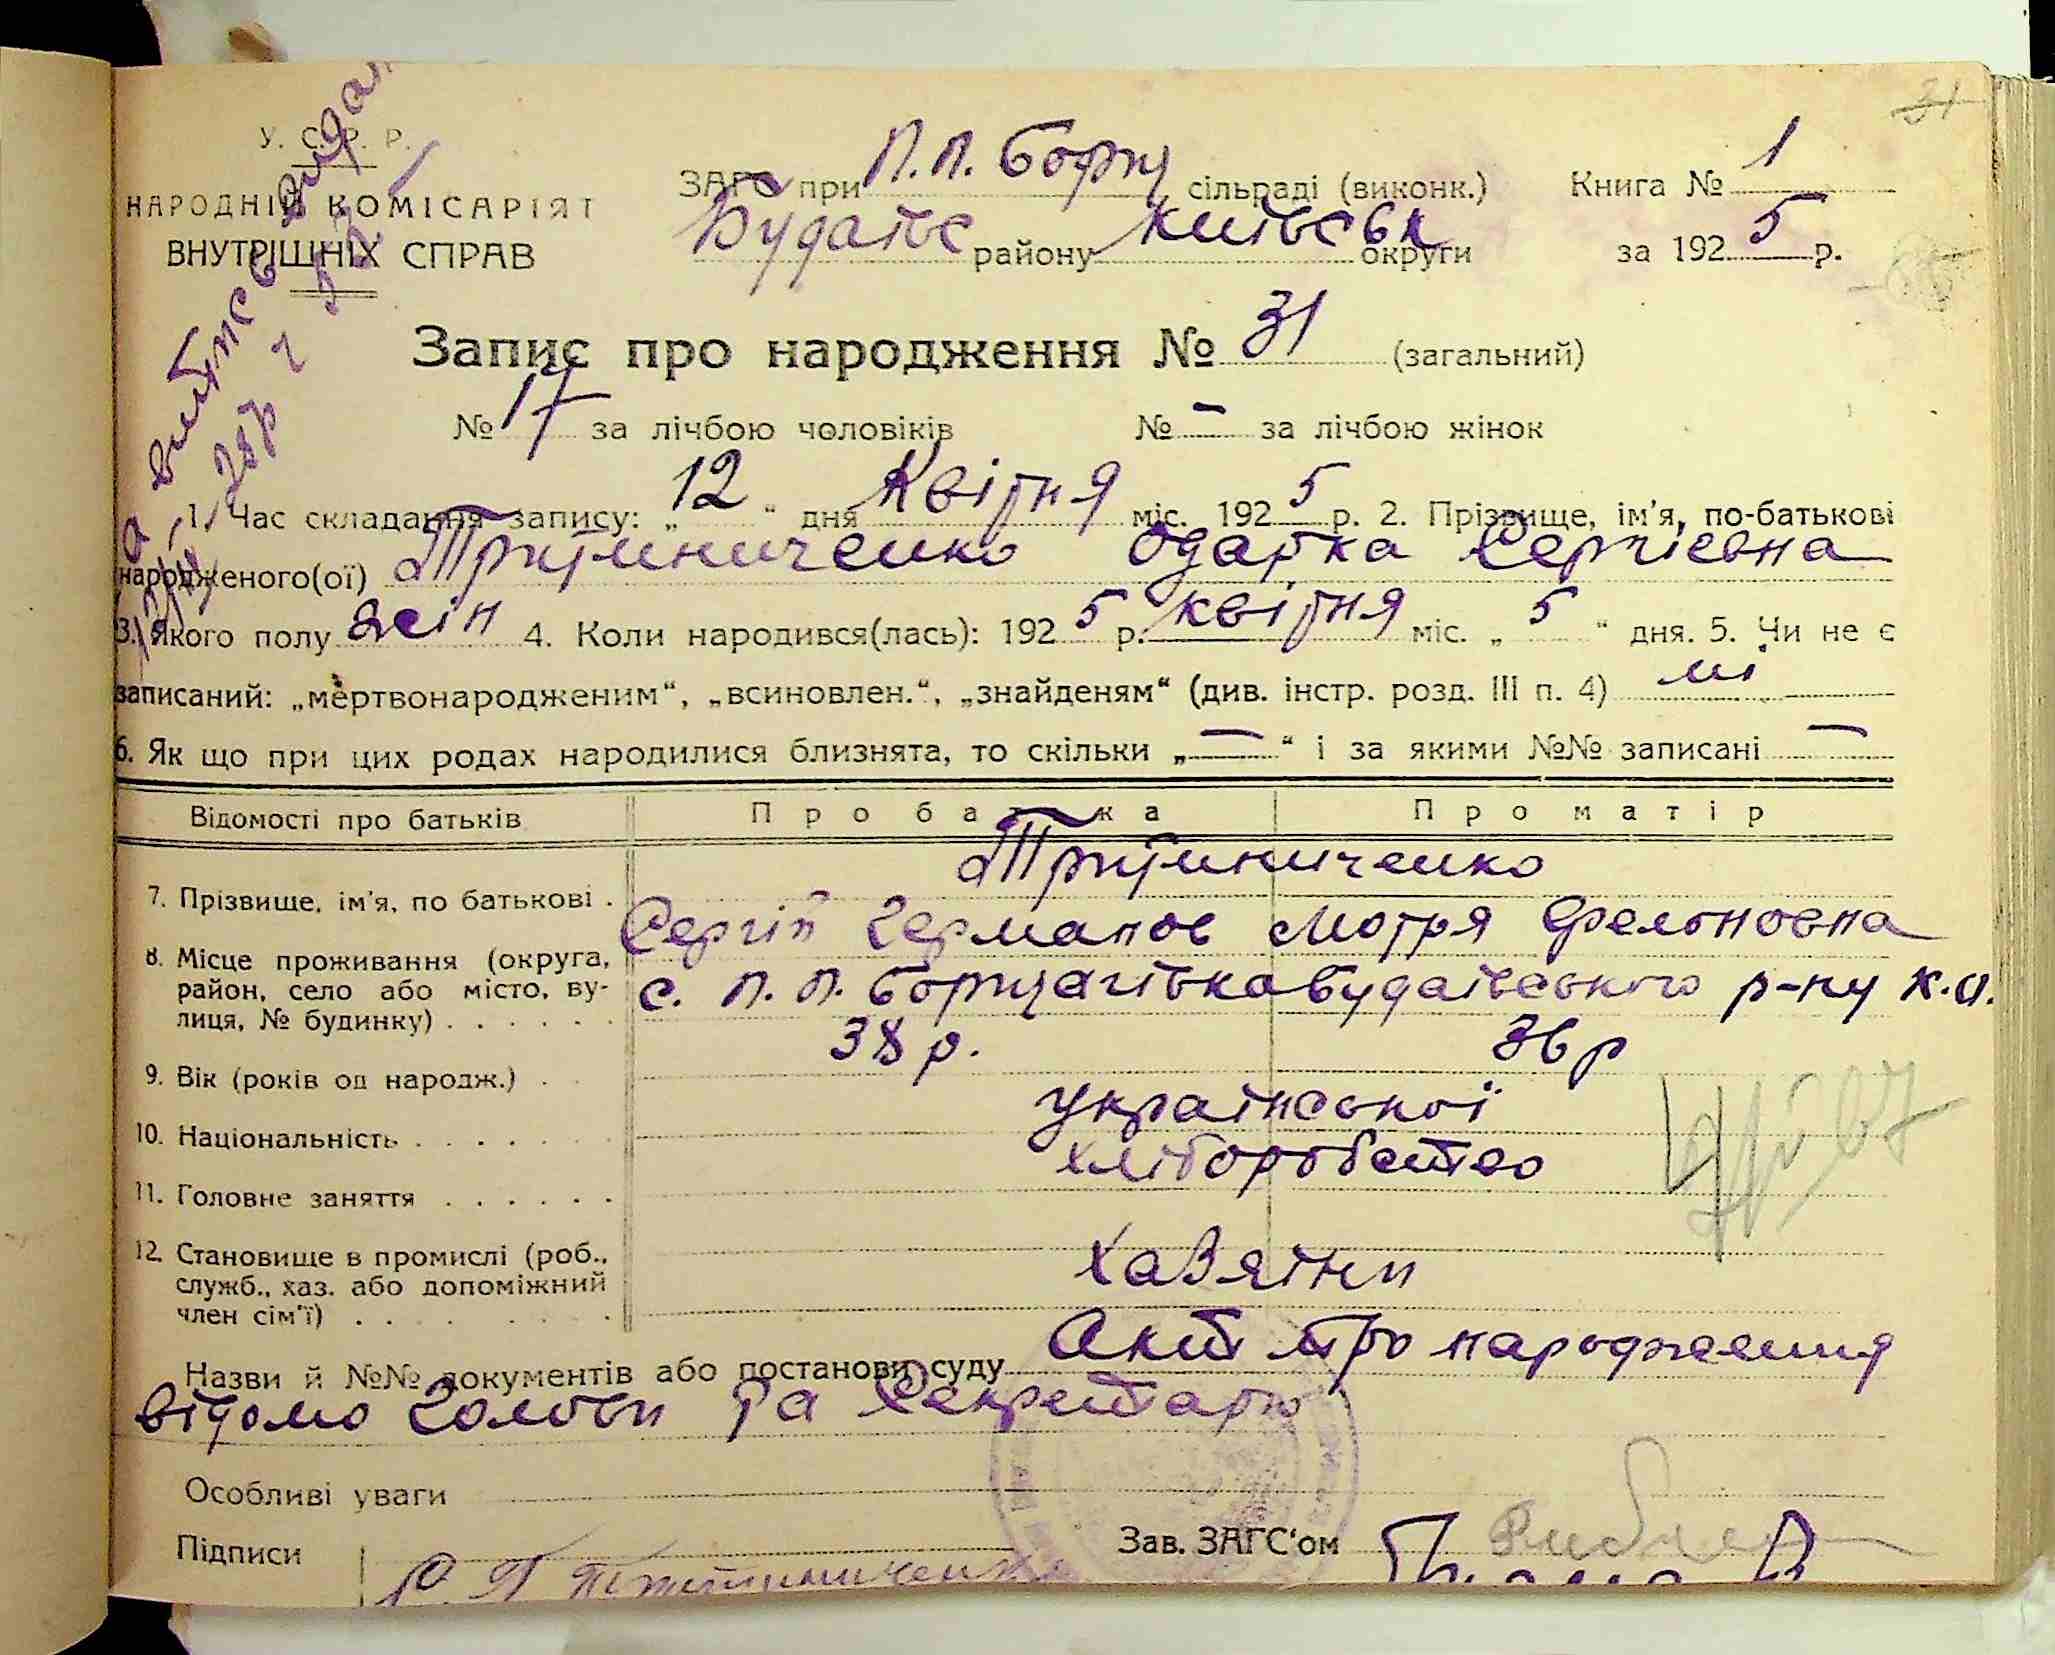 31
У. С. Р. Р.
НАРОДНІЙ КОМІСАРІЯТ
ВНУТРІШНІХ СПРАВ
ЗАГС при П.П. Борщ сільраді (виконк.)
Будаївс району Київськ округи
Книга № 1
за 1925 р.
Запис про народження № 31 (загальний)
№ 17 за лічбою чоловіків № – за лічбою жінок
1. Час складання запису: „12“ дня Квітня міс. 1925 р. 2. Прізвище, ім'я, по-батькові
народженого(ої) Тритиниченко Одарка Сергієвна
3. Якого полу жін 4. Коли народився(лась): 1925 р. квітня міс. „5“ дня. 5. Чи не є
записаний: „мертвонародженим“, „всиновлен.“, „знайденям“ (див. інстр. розд. III п. 4) ні
6. Як що при цих родах народилися близнята, то скільки „—“ і за якими №№ записані —
Відомості про батьків Про батька Про матір
Тритиниченко
7. Прізвище, ім'я, по батькові . Сергій Германов Мотря
8. Місце проживання (округа, район, село або місто, вулиця, № будинку) . . . . . . с. П.П. Борщагівка Будаївського р-ну К.О.
9. Вік (років од народж.) . . 38 р. 36 р
10. Національність . . . . . . . української
11. Головне заняття . . . . . . хліборобство
12. Становище в промислі (роб., служб., хаз. або допоміжний член сім'ї) . . . . . . . Хазяїни
Назви й №№ документів або постанови суду Акт про народження
відомо Голови та Секретарю
Особливі уваги
Підписи
Зав. ЗАГС'ом